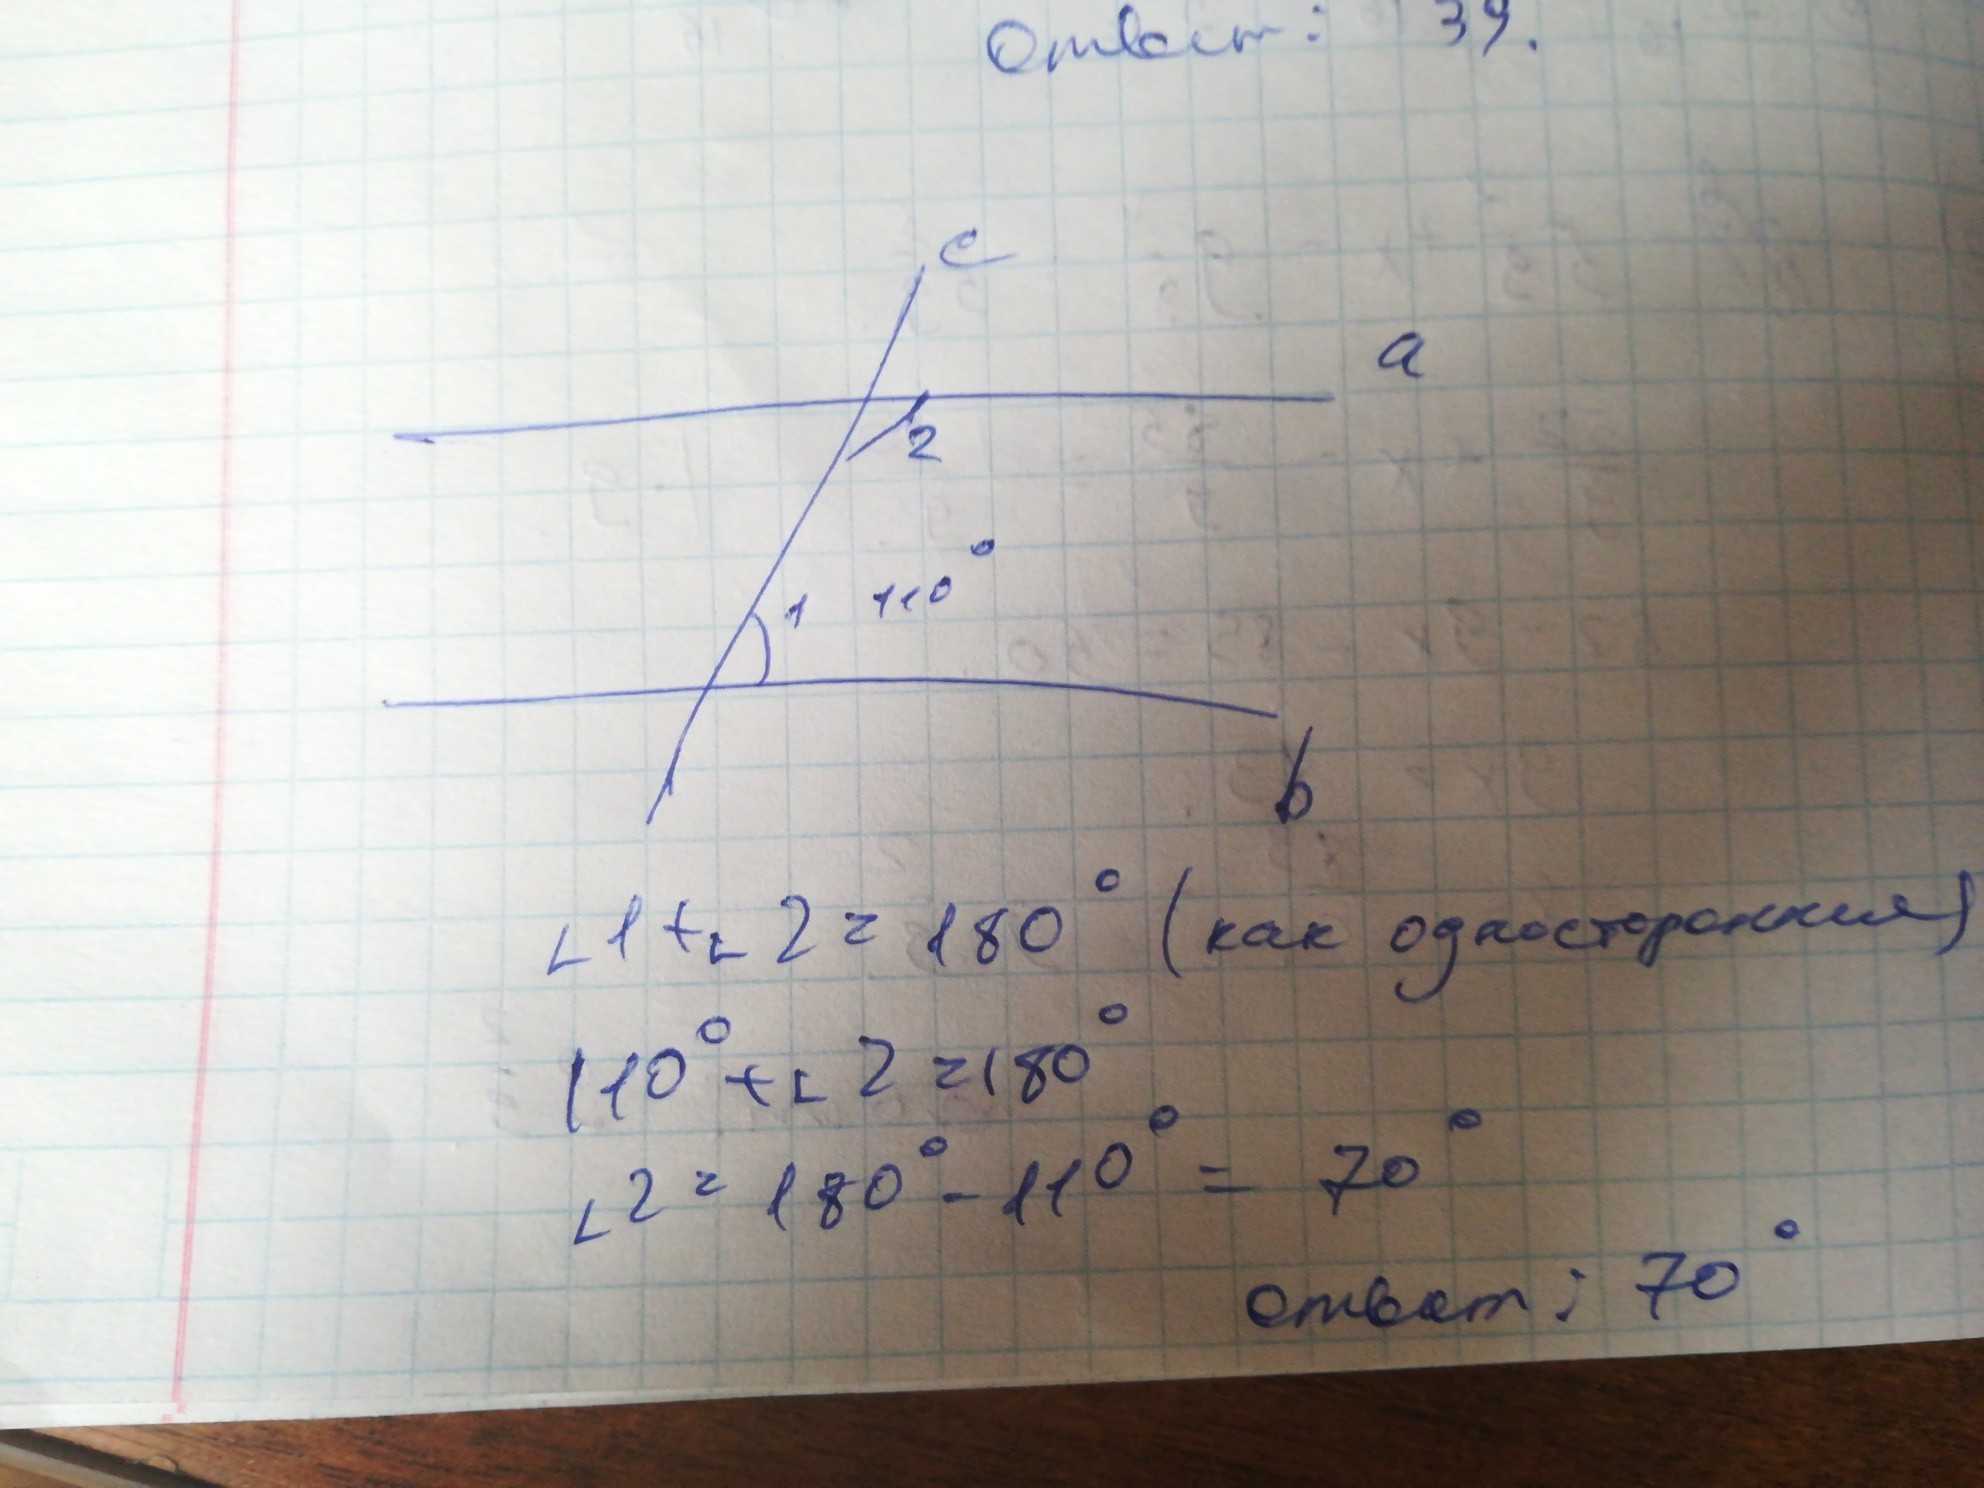 Ответ: 39.
c
a
2
1 110°
b
∟1+∟2=180° (как односторонние)
110°+∟2=180°
∟2=180°-110° = 70°
ответ: 70°